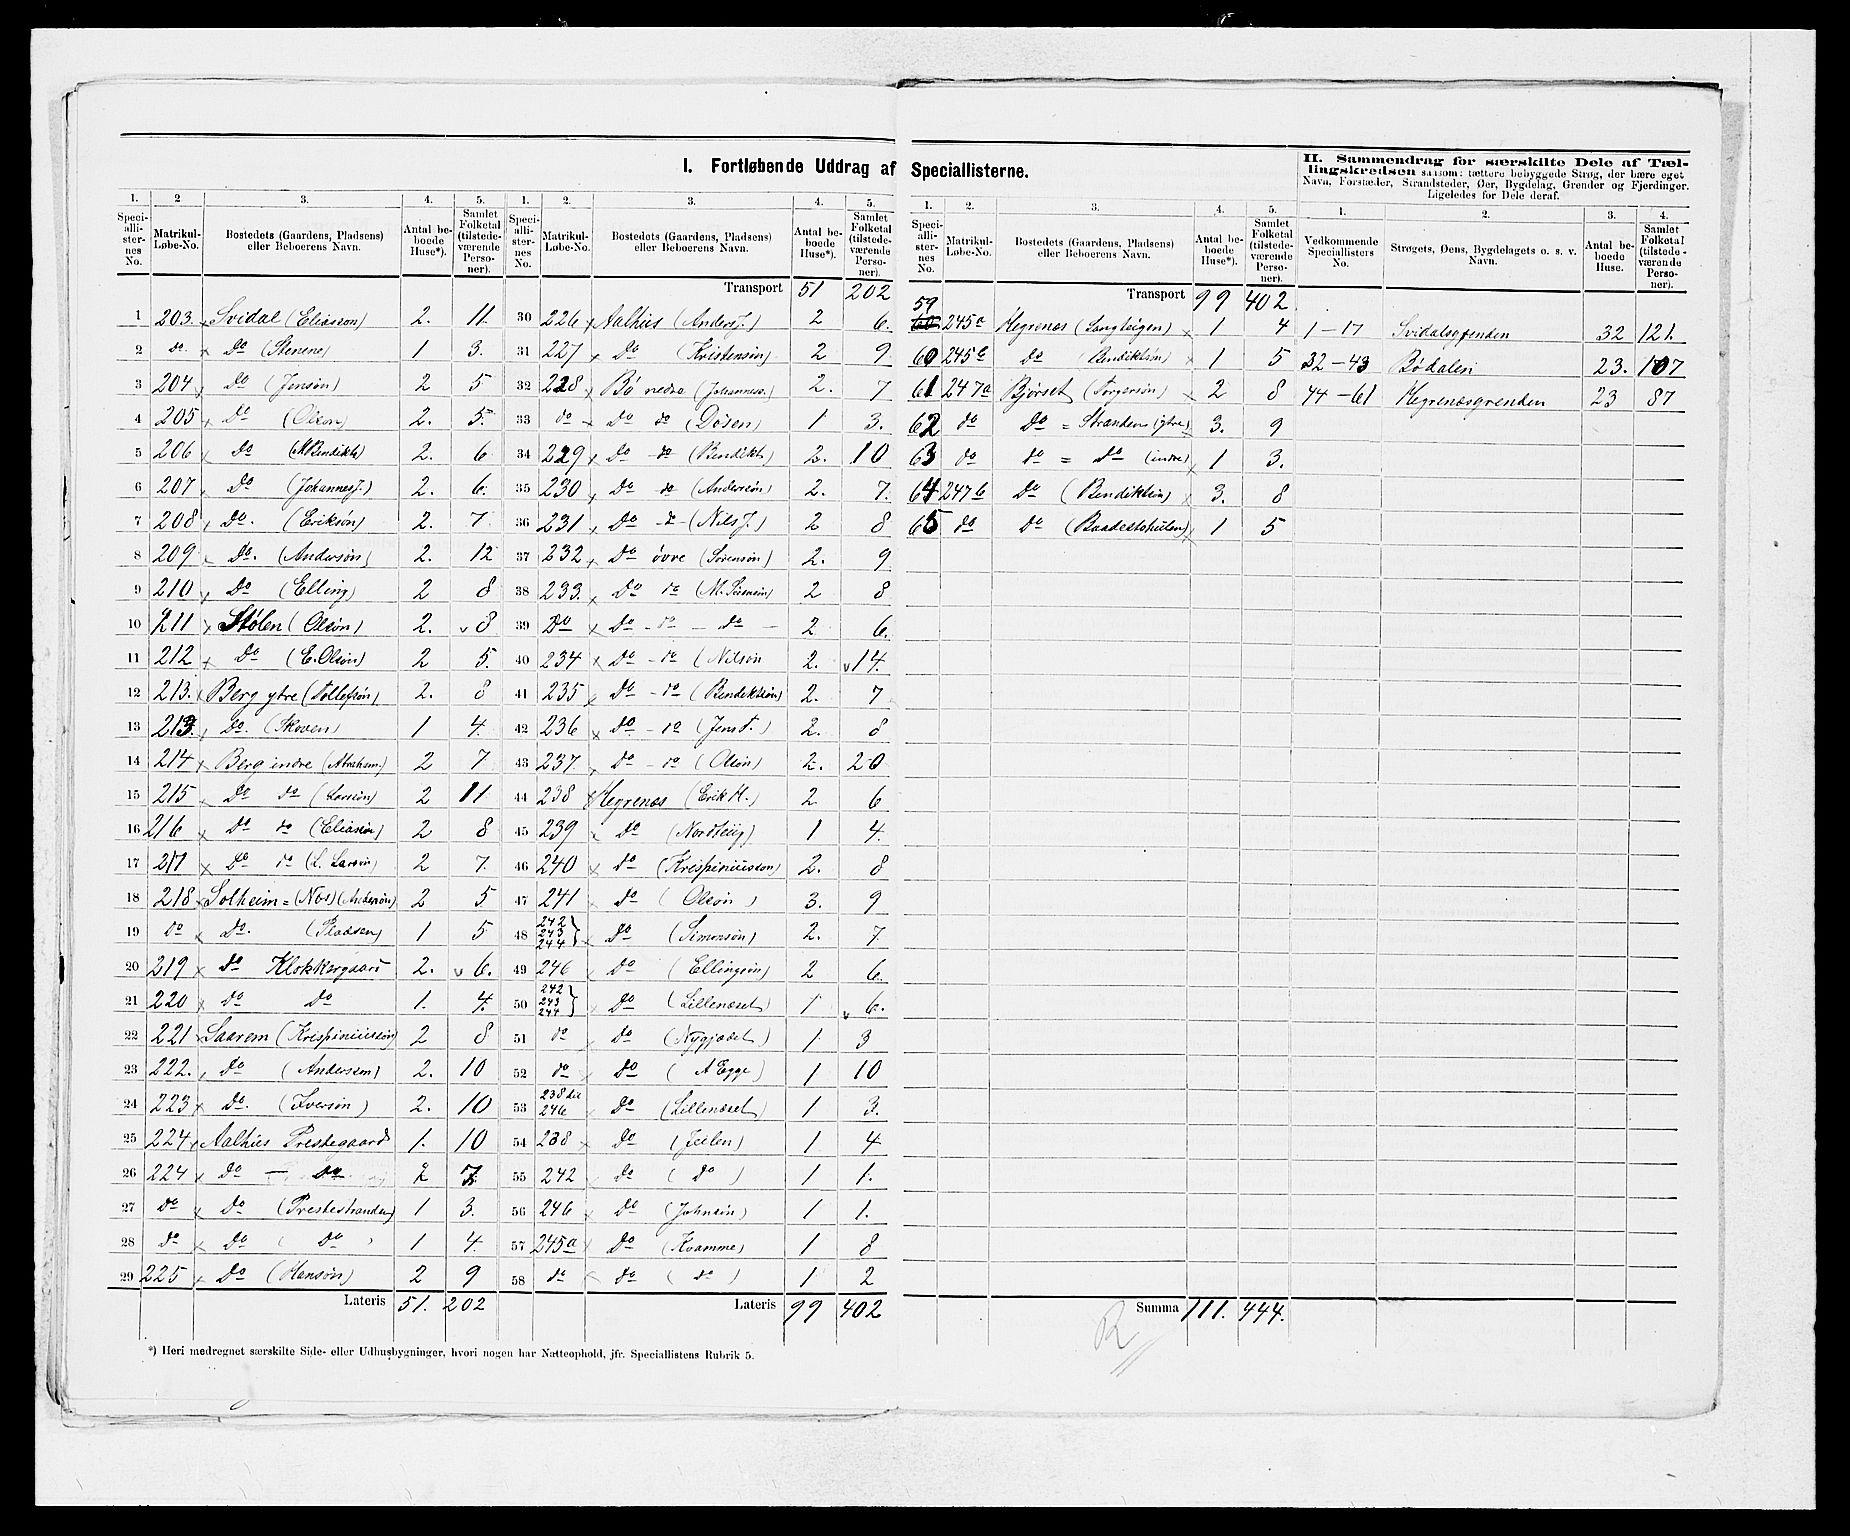 I. Fortløbende Uddrag af Speciallisterne.
II. Sammendrag for særskilte Dele af Tællingskredsen saasom: tættere bebyggede Strøg, der bære eget
Navn, Forstæder, Strandsteder, Øer, Bygdelag, Grender og Fjerdinger.
Ligeledes for Dele deraf.
1. 2 3. 4. 5.
Speciallisternes No. Matrikul-Løbe-No. Bostedets (Gaardens, Pladsens) eller Beboerens Navn. Antal beboede Huse*). Samlet Folketal (tilstedeværende Personer).
1 203. Svidal (Eliasson) 2. 11.
2 do Do (Stenene) 1 3.
3 204 Do (Jensøn) 2 5
4 205 Do (Olson) 2. 5.
5 206 Do (M Bendikts) 2. 6
6 207 Do (Johannes J.) 2. 6.
7 208 Do. (Eriksøn) 2. 7
8 209 Do. (Andersøn) 2. 12
9 210 Do (Elling) 2 8
10 211 Stølen (Olsøn) 2. 8
11 212 Do (E. Olsøn) 2 5.
12 213. Berg ytre (Tollefsøn) 2. 8
13 213. Do. (Skoven) 1 4.
14 214 Berg indre (Abraham.) 2 7.
15 215 Do do (Larsøn) 2 11
16 216 Do do (Eliasøn) 2 8
17 217 Do do (L. Larsøn) 2 7.
18 218 Solheim = (Nos) (Andersøn) 2 5
19 do Do. (Pladsen) 1 5
20 219 Do Klokkergaard 2. 6.
21 220 Do Do 1. 4.
22 221 Saarem (Krispiniussøn) 2 8
23 222. Do (Anderssøn) 2. 10
24 223 Do. (Iversøn) 2. 10
25 224 Aalhus Prestegaard 1. 10
26 224 Do — Do 2 7.
27 do Do (Prestestranden) 1 3.
28 do Do (Do) 1 4.
29 225 Do (Hansøn) 2 9
Lateris 51. 202
1. 2. 3. 4. 5.
Speciallisternes No. Matrikul-Løbe-No. Bostedets (Gaardens, Pladsens) eller Beboerens Navn. Antal beboede Huse*). Samlet Folketal (tilstedeværende Personer).
Transport 51 202
30 226 Aalhus (Anders J.) 2 6.
31 227 Do (Kristensøn) 2 9
32 228 Bø nedre (Johanness.) 2. 7
33 do Do do Døsen) 1 3.
34 229 Do do (Bendikt.) 2. 10
35 230 Do do (Andersøn) 2. 7.
36 231 Do - do - (Nils J.) 2 8
37 232 Do øvre (Sørensøn) 2. 9
38 233. Do do (M. Sørensøn) 2 8
39 Do Do - do - do - 2 6.
40 234 Do - do (Nilsøn 2. 14.
41 235 Do - do (Bendiktsøn) 2. 7
42 236 Do - do (Jens 2. 8
43 237. Do - do (Olsøn) 2. 20
44 238 Hegrenæs (Erik H.) 2 6
45 239 Do (Nordteiig) 1 4.
46 240 Do (Krispiniusson) 2. 8
47 241 Do (Olsøn) 3. 9
48 242 243 244 } Do (Simonsøn) 2. 7.
49 246 Do (Ellingsøn) 2 6.
50 242 243 244 } Do (Lillenæset) 1 6.
51 do Do (Nygjædet) 1 3
52 do Do (A Egge) 1 10
53 238 til 246 Do (Lillenæset) 1 3.
54 238 Do (Jeilen) 1 4
55 242 Do (Do) 1 1.
56 246 Do (Johnsøn) 1 1.
57 245a Do (Kvamme) 1 8
58 do Do (do) 1 2
Lateris 99 402
1. 2. 3. 4. 5.
Speciallisternes No. Matrikul-Løbe-No. Bostedets (Gaardens, Pladsens) eller Beboerens Navn. Antal beboede Huse*). Samlet Folketal (tilstedeværende Personer).
Transport 99 402.
59 60 245a Hegrenes (Langteigen) 1 4
60 245b do (Bendiktsøn) 1 5
61 247a Bjørset (Torgersøn) 2 8
62 do Do = Stranden (ytre) 3. 9
63 do do = do (indre) 1 3.
64 247b Do (Bendiktsøn) 3. 8
65 do Do (Baadestohulen) 1 5
Summa 111. 444.
1. 2. 3. 4.
Vedkommende Speciallisters No. Strøgets, Øens, Bygdelagets o. s. v. Navn. Antal beboede Huse. Samlet Folketal (tilstedeværende Personer).
1-17 Svidalsgrenden 32 121.
32-43 Bødalen 23. 107
44-61 Hegrenæsgrenden 23 87
*) Heri medregnet særskilte Side- eller Udhusbygninger, hvori nogen har Natteophold, jfr. Speciallistens Rubrik 5.